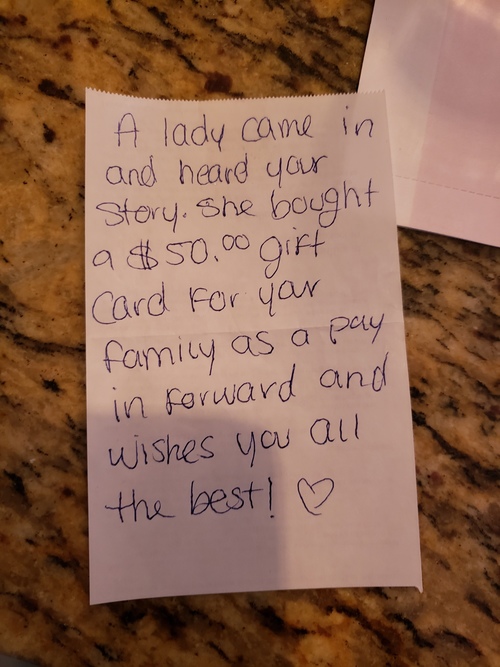 A lady came in
and heard your
Story. She bought
a $50.00 gift
Card For your
family as a pay
in Forward and
wishes you all
the best! ♡